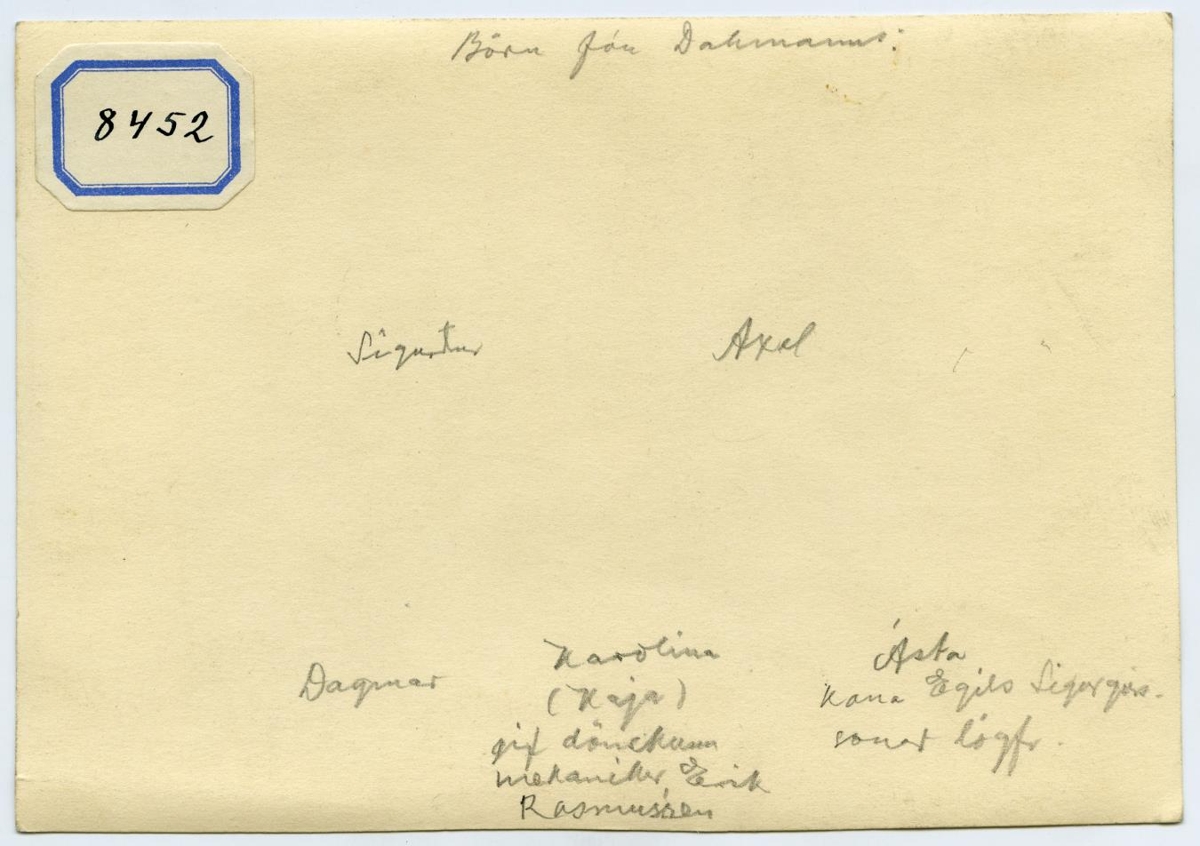 Börn Jón Dahmanns:
8452
Sigurður
Axel
Dagmar
Karolina
(Kaja)
gif dönskum
mekaniker, Erik
Rasmussen
Ásta
Kona Egils Sigurgeirs-
sonar lögfr.